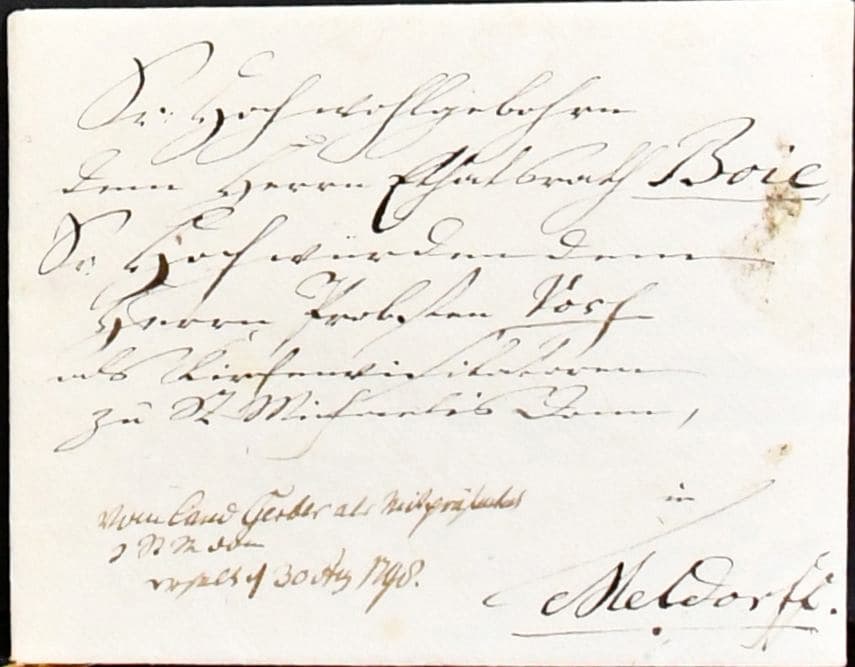 Sr. Hochwohlgebohrn
dem Herrn Etatsrath Boie
Sr. Hochwürden dem
Herrn Probsten Voss
als Kirchenvisitatoren
zu St Michaelis Donn,
in
Meldorff.
vom Cand Gerber als
St M Donn
erhalt d 30 Aug 1798.